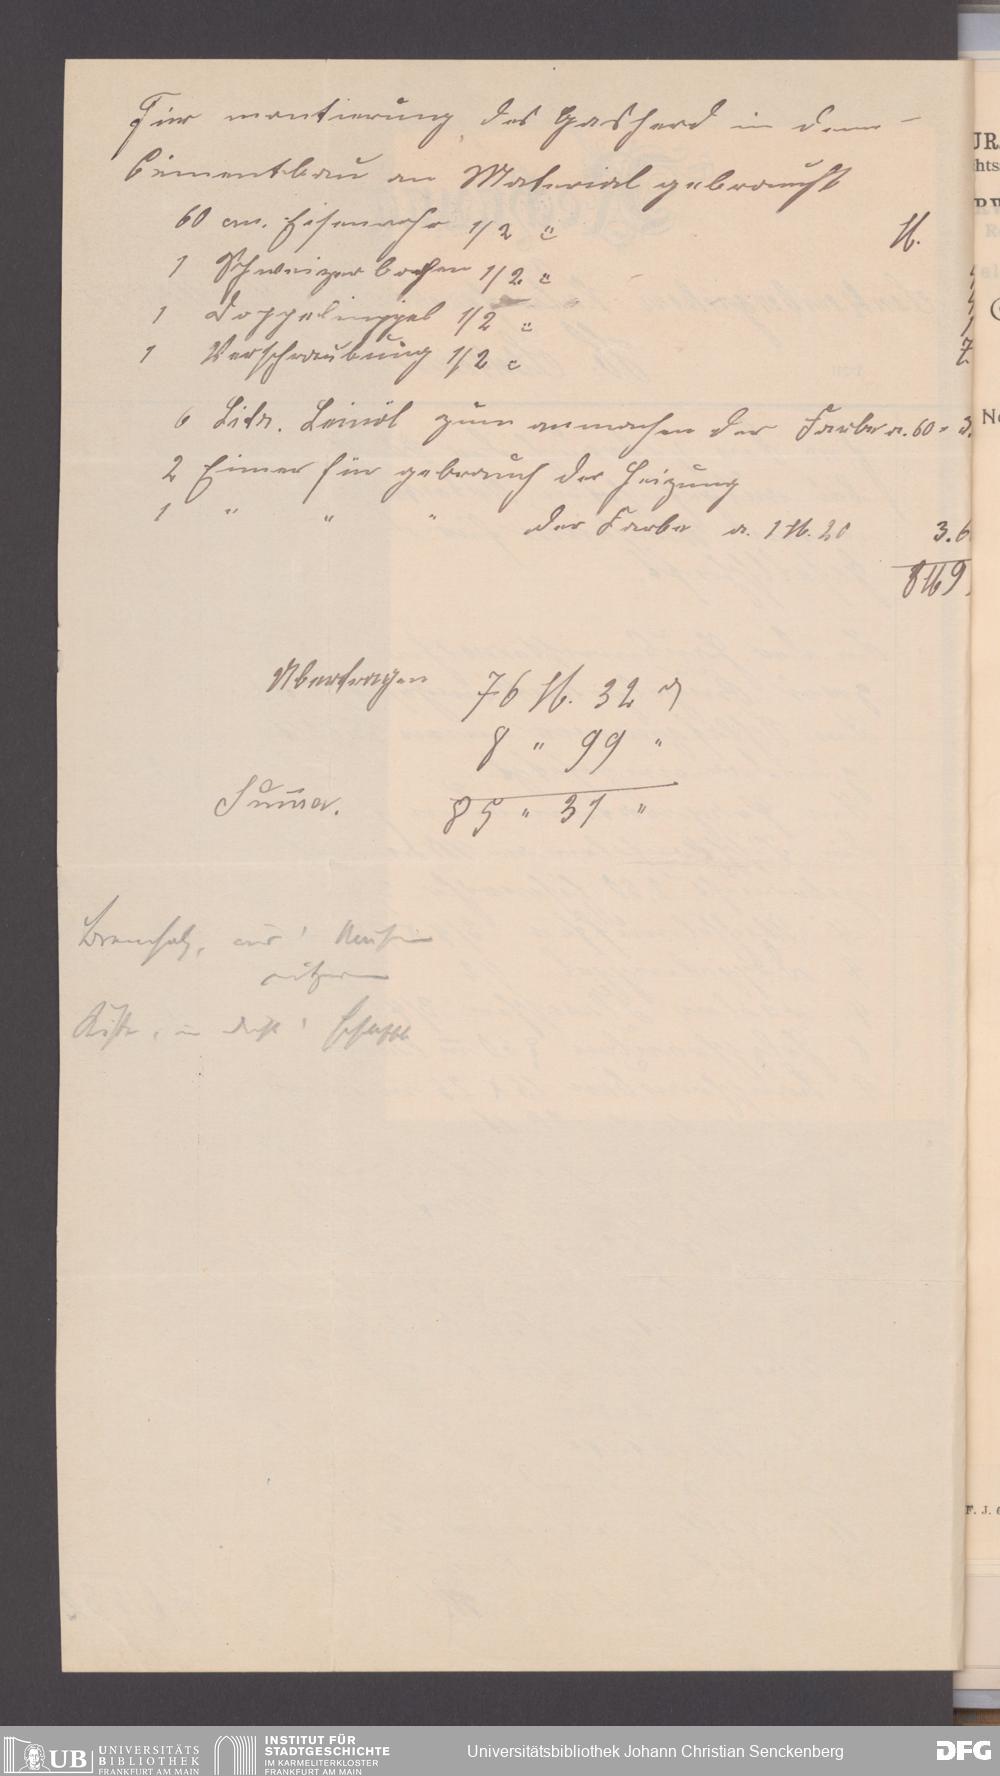 Für montierung des Gasherd in dem
Cimentbau an Material gebraucht
60 cm. Eisenrohr 1/2 "
M.
1 Schweizerbogen 1/2 "
1 Doppelnippel 1/2 "
1 Verschraubung 1/2 "
6 Litr. Leinöl zum anmachen der Farbe a. 60 = 3.
2 Eimer für gebrauch der Heizung
1 " " " der Farbe a. 1 M. 20 3.6
8 M 9
Übertragen 76 M. 32 ₰
8 " 99 "
Summa. 85 " 31 "
Brennholz,
Kiste, in
UB UNIVERSITÄTS
BIBLIOTHEK
FRANKFURT AM MAIN
INSTITUT FÜR
STADTGESCHICHTE
IM KARMELITERKLOSTER
FRANKFURT AM MAIN
Universitätsbibliothek Johann Christian Senckenberg
DFG